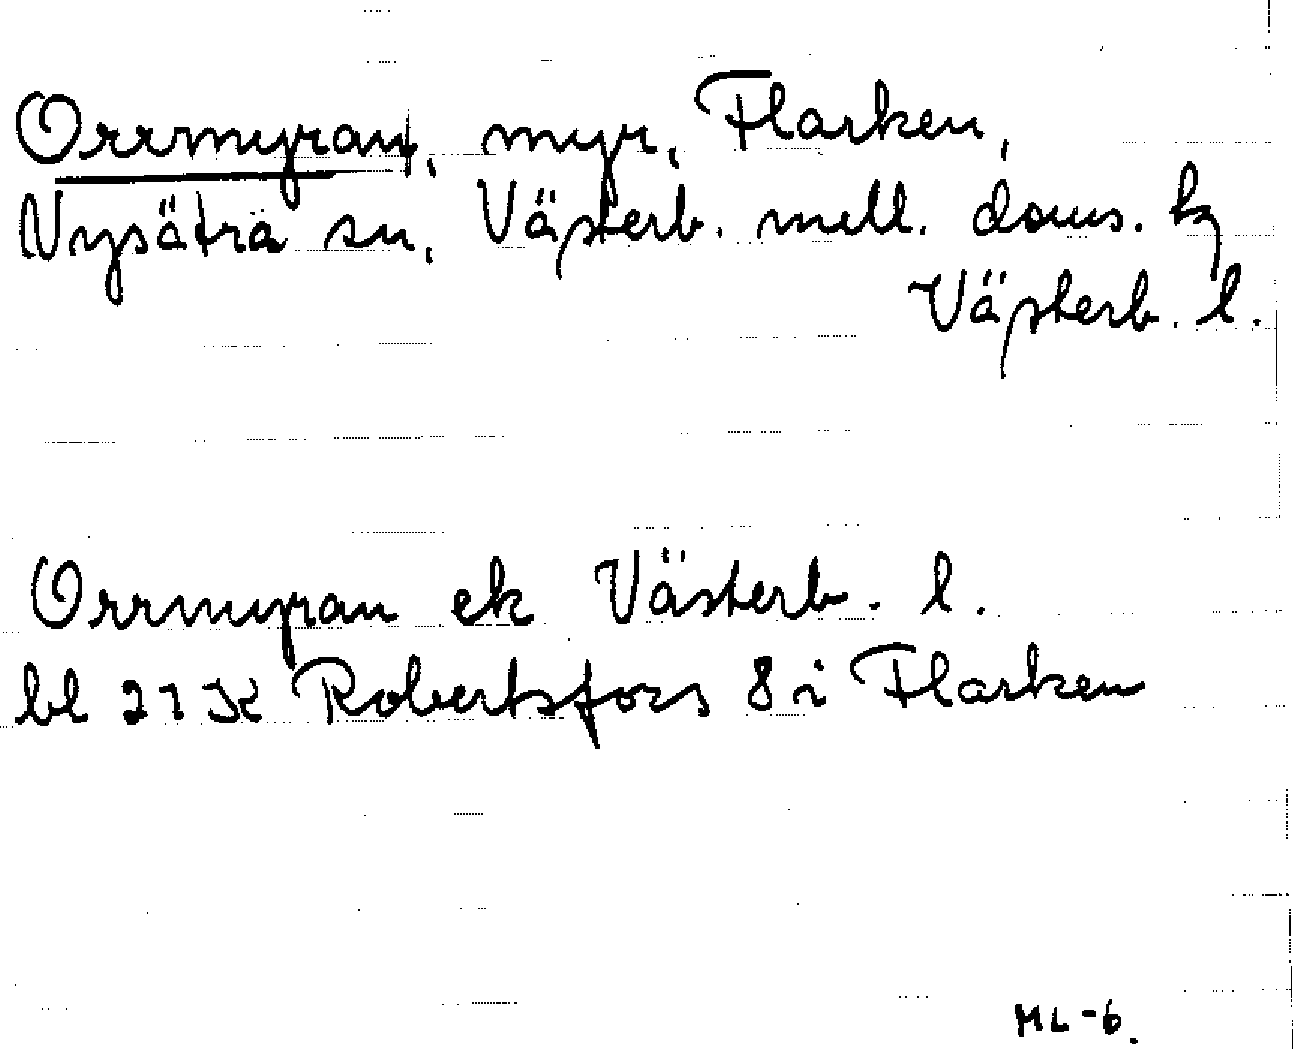 Orrmyran, myr, Flarken,
Nysätra sn, Västerb. mell. doms. hg
Västerb. l.
Orrmyran ek Västerb. l.
bl 21 K Robertsfors 8 i Flarken
ML-6.